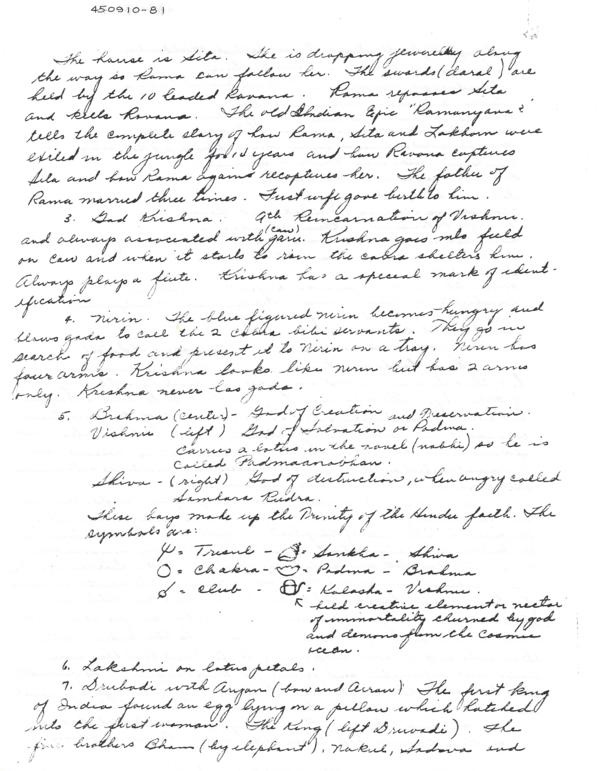 450910-81
The house is Sita. She is dropping jewerelky along
the way so Rama can follow her. The swords (daral) are
held by the 10 headed Ravana. Rama reposses Sita
and kills Ravana. The old Indian Epic "Ramanyana"
tells the complete story of how Rama, Sita and Lakhom were
exiled in the jungle for 14 years and how Ravona captures
Sita and how Rama agains recaptures her. The father of
Rama married three times. First wife gave birth to him.
3. God Krishna. 9th Reincarnation of Vishnu.
and always associated with garu. (cow) Krishna goes into field
on cow and when it starts to rain the cobra shelters him.
Always plays a flute. Krishna has a special mark of ident-
ification
4. Nirin. The blue figured nirin becomes hungry and
blows gada to call the 2 cobra bibi servants. They go in
search of food and present it to Nirin on a tray. Nirin has
four arms. Krishna looks like nirin but has 2 arms
only. Krishna never has gada.
5. Brahma (center) - God of Creation and Preservation.
Vishnu (left) God of Salvation or Padma.
Carries a lotus in the navel (nabhi) so he is
called Padmaanabhan.
Shiva - (right) God of distruction, when angry called
Samhara Rudra.
These boys made up the Trinity of the Hindu faith. The
symbols are:
= Tresul - = Sankha - Shiva
= Chakra - = Padma - Brahma
= Club - = Kalasha - Vishnu.
held creative element or nector
of immortality churned by god
and demons from the Cosmic
ocean.
6. Lakshmi on lotus petals.
7. Drubadi with Aryan (bow and Arrow) The first king
of India found an egg lying on a pillow which hatched
into the first woman. The King (left Druwadi). The
five brothers Bham (by elephant), Nakul, Sadava and